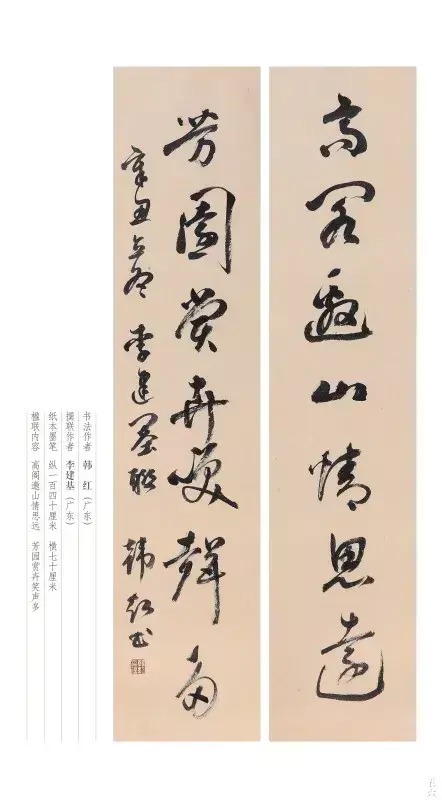 高閣邀山情思遠
芳園賞卉笑聲多
辛丑立冬 李建基聯 韓紅書
书法作者 韩 红（广东）
撰联作者 李建基（广东）
纸本墨笔 纵一百四十厘米 横七十厘米
楹联内容 高阁邀山情思远 芳园赏卉笑声多
五六